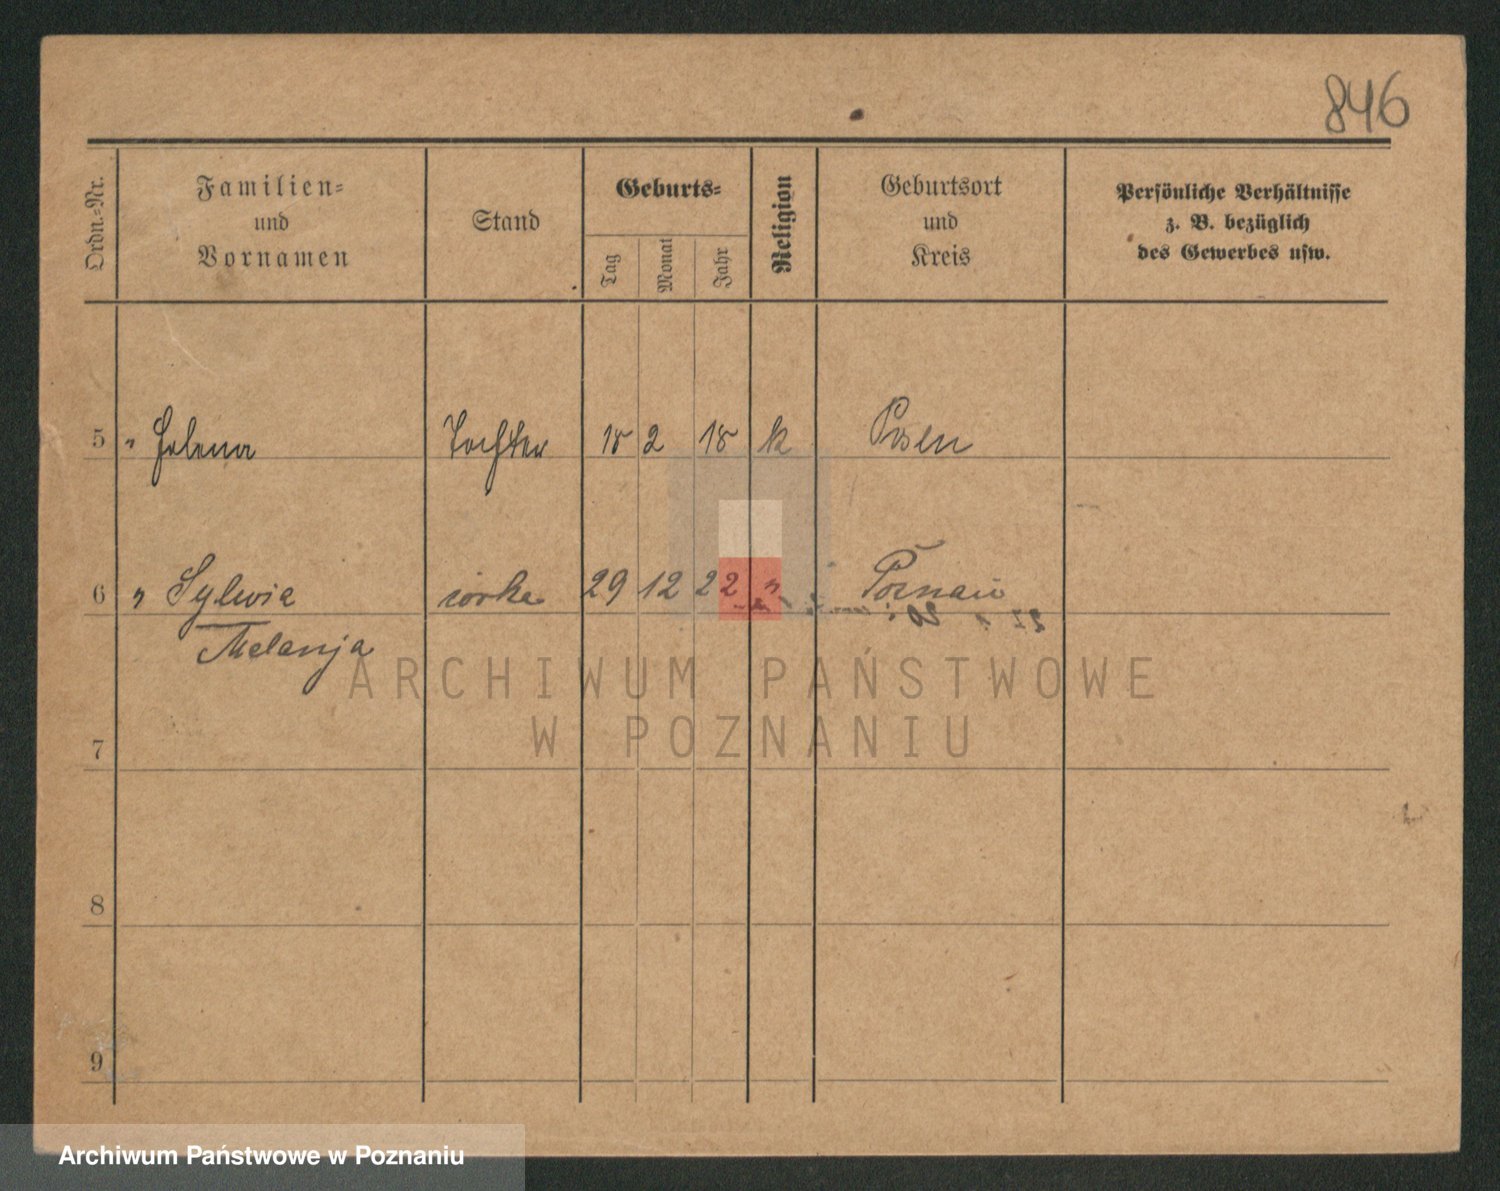 846
Ordn.=Nr.
Familien=
und
Vornamen
Stand
Geburts=
Tag
Monat
Jahr
Religion
Geburtsort
und
Kreis
Persönliche Verhältnisse
z. B. bezüglich
des Gewerbes usw.
5 " Helena Tochter 18 2 18 k Posen
6 " Sylwia córka 29 12 22 " Poznań
Melanja
ARCHIWUM PAŃSTWOWE
W POZNANIU
7
8
9
Archiwum Państwowe w Poznaniu